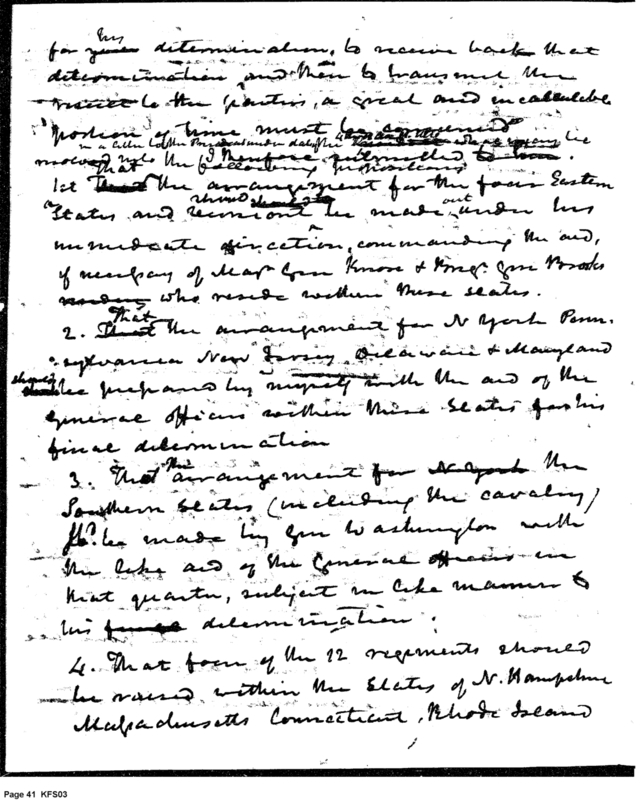 his
for your determination, to receive back that
determination and then to transmit the
result to the parties, a great and incalculable
portion of time must be consumed
in a letter to the President under date of the
resolved into the following propositions I therefore submitted to him.
1st That the arrangement for the four Eastern
States and should be made out under his
immediate direction, commanding the aid,
if necessary of Majr Genl Knox & Brigr Genl Brooks
who reside within these states.
2. That the arrangement for N York Penn-
sylvania New Jersey Delaware & Maryland
should be prepared by myself with the aid of the
General officers within these States for his
final determination
3. That the arrangement for N York the
Southern States (including the cavalry)
shd. be made by Gen Washington with
the like aid of the General officers in
that quarter, subject in like manner to
his final determination.
4. That four of the 12 regiments should
be raised within the States of N. Hampshire
Massachusetts Connecticut, Rhode Island
Page 41 KFS03